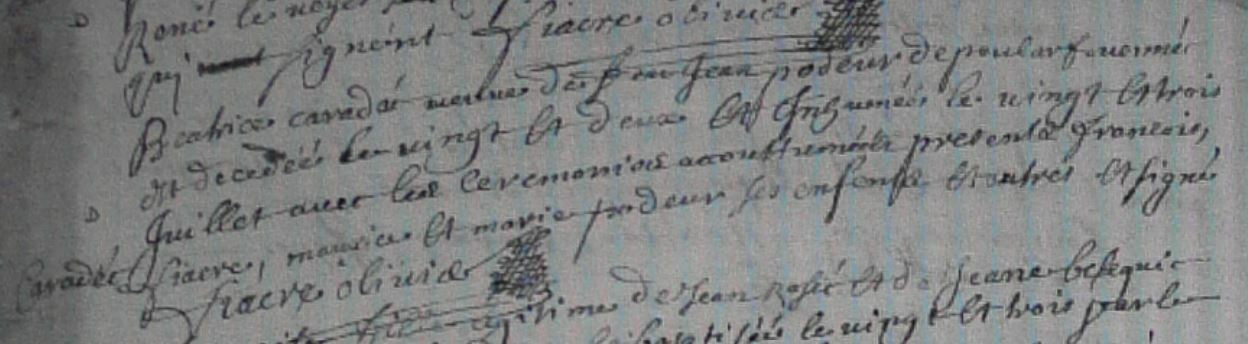 René le
qui signent fiacre olivier
Beatrice caradec veufve de feu Jean podeur de poularfouenné
est decedée le vingt et deux et Inhumée le vingt et trois
Juillet avec les ceremonies accoustumées presents francois,
Caradec fiacre, maurice et marie podeur ses enfents et autres et signé
fiacre olivier
fille legitime de Jean et de Jeane
baptisée le vingt et trois par le